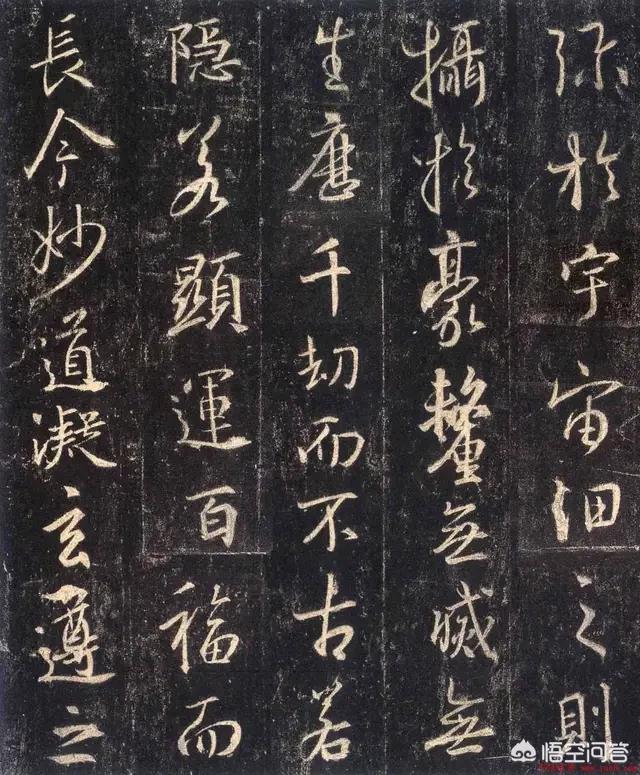 弥於宇宙細之則
攝於豪釐無滅無
生歷千劫而不古若
隱若顯運百福而
長今妙道凝玄遵之
悟空问答